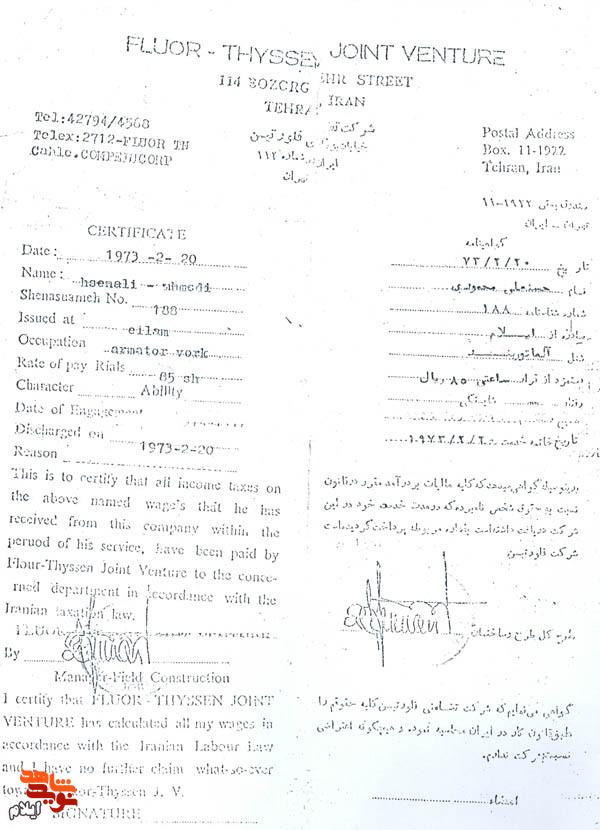 FLUOR - THYSSEN JOINT VENTURE
114 BOZORG EHR STREET
TEHRAN IRAN
Tel:42794/4568
Telex:2712-FLUOR TH
Cable.COMPEJUCORP
شرکت
فلور تیسن
تهران
Postal Address
Box. 11-1922
Tehran, Iran
صندوق پستی ۱۹۲۲-۱۱
تهران - ایران
CERTIFICATE
Date: 1973 -2- 20
Name: hsenali - mhmedi
Shenasnameh No. 188
Issued at eilam
Occupation armator vork
Rate of pay Rials 85 sh
Character Ability
Date of Engagement
Discharged on 1973-2-20
Reason
This is to certify that all income taxes on
the above named wage's that he has
received from this company within the
peruod of his service, have been paid by
Flour-Thyssen Joint Venture to the conce-
rned department in accordance with the
Iranian taxation law.
FLUOR
By
Manager-Field Construction
I certify that FLUOR - THYSSEN JOINT
VENTURE has calculated all my wages in
accordance with the Iranian Labour Law
and I have no further claim what-so-ever
Thyssen J. V.
SIGNATURE
گواهینامه
تاریخ ۷۳/۲/۲۰
نام حسنعلی محمودی
شماره شناسنامه ۱۸۸
صادره از ایلام
شغل آرماتوربند
دستمزد از قرار ساعتی ۸۵ ریال
رفتار
تاریخ خاتمه خدمت ۱۹۷۳/۲/۲۰
بدینوسیله گواهی میدهد که کلیه مالیات بر درآمد مقرر در قانون
نسبت به شخص نامبرده که در مدت خدمت خود در این
شرکت دریافت داشته است مربوطه پرداخت گردیده است
شرکت فلور تیسن
گواهی می نمایم که شرکت تضامنی فلور تیسن کلیه حقوقم را
طبق قانون کار در ایران محاسبه نموده و هیچگونه اعتراضی
نسبت به شرکت ندارم.
امضاء
نوید شاهد
ایلام